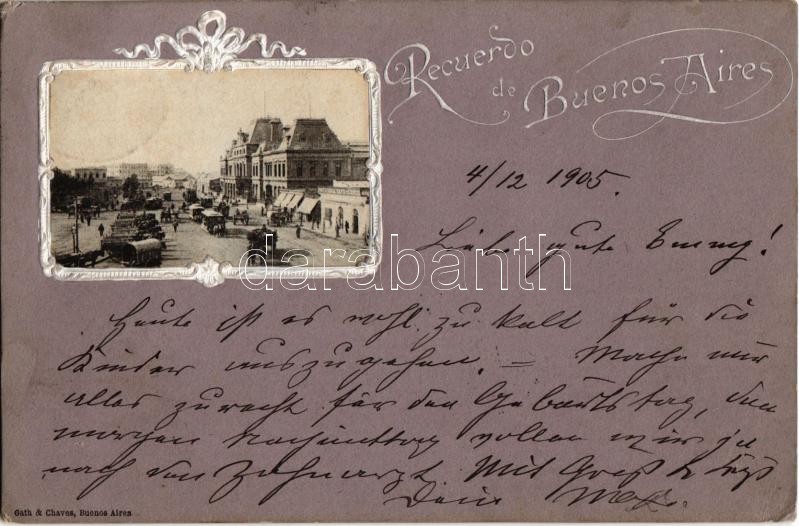 Recuerdo
de Buenos Aires
4/12 1905.
Liebe gute Emmy!
Heute ist es wohl zu kalt für die
Kinder auszugehen. – Mache nur
alles zurecht für den Geburtstag, denn
morgen Nachmittag wollen wir ja
nach dem Zahnarzt. Mit Gruß & Kuß
Dein
Gath & Chaves, Buenos Aires
darabanth